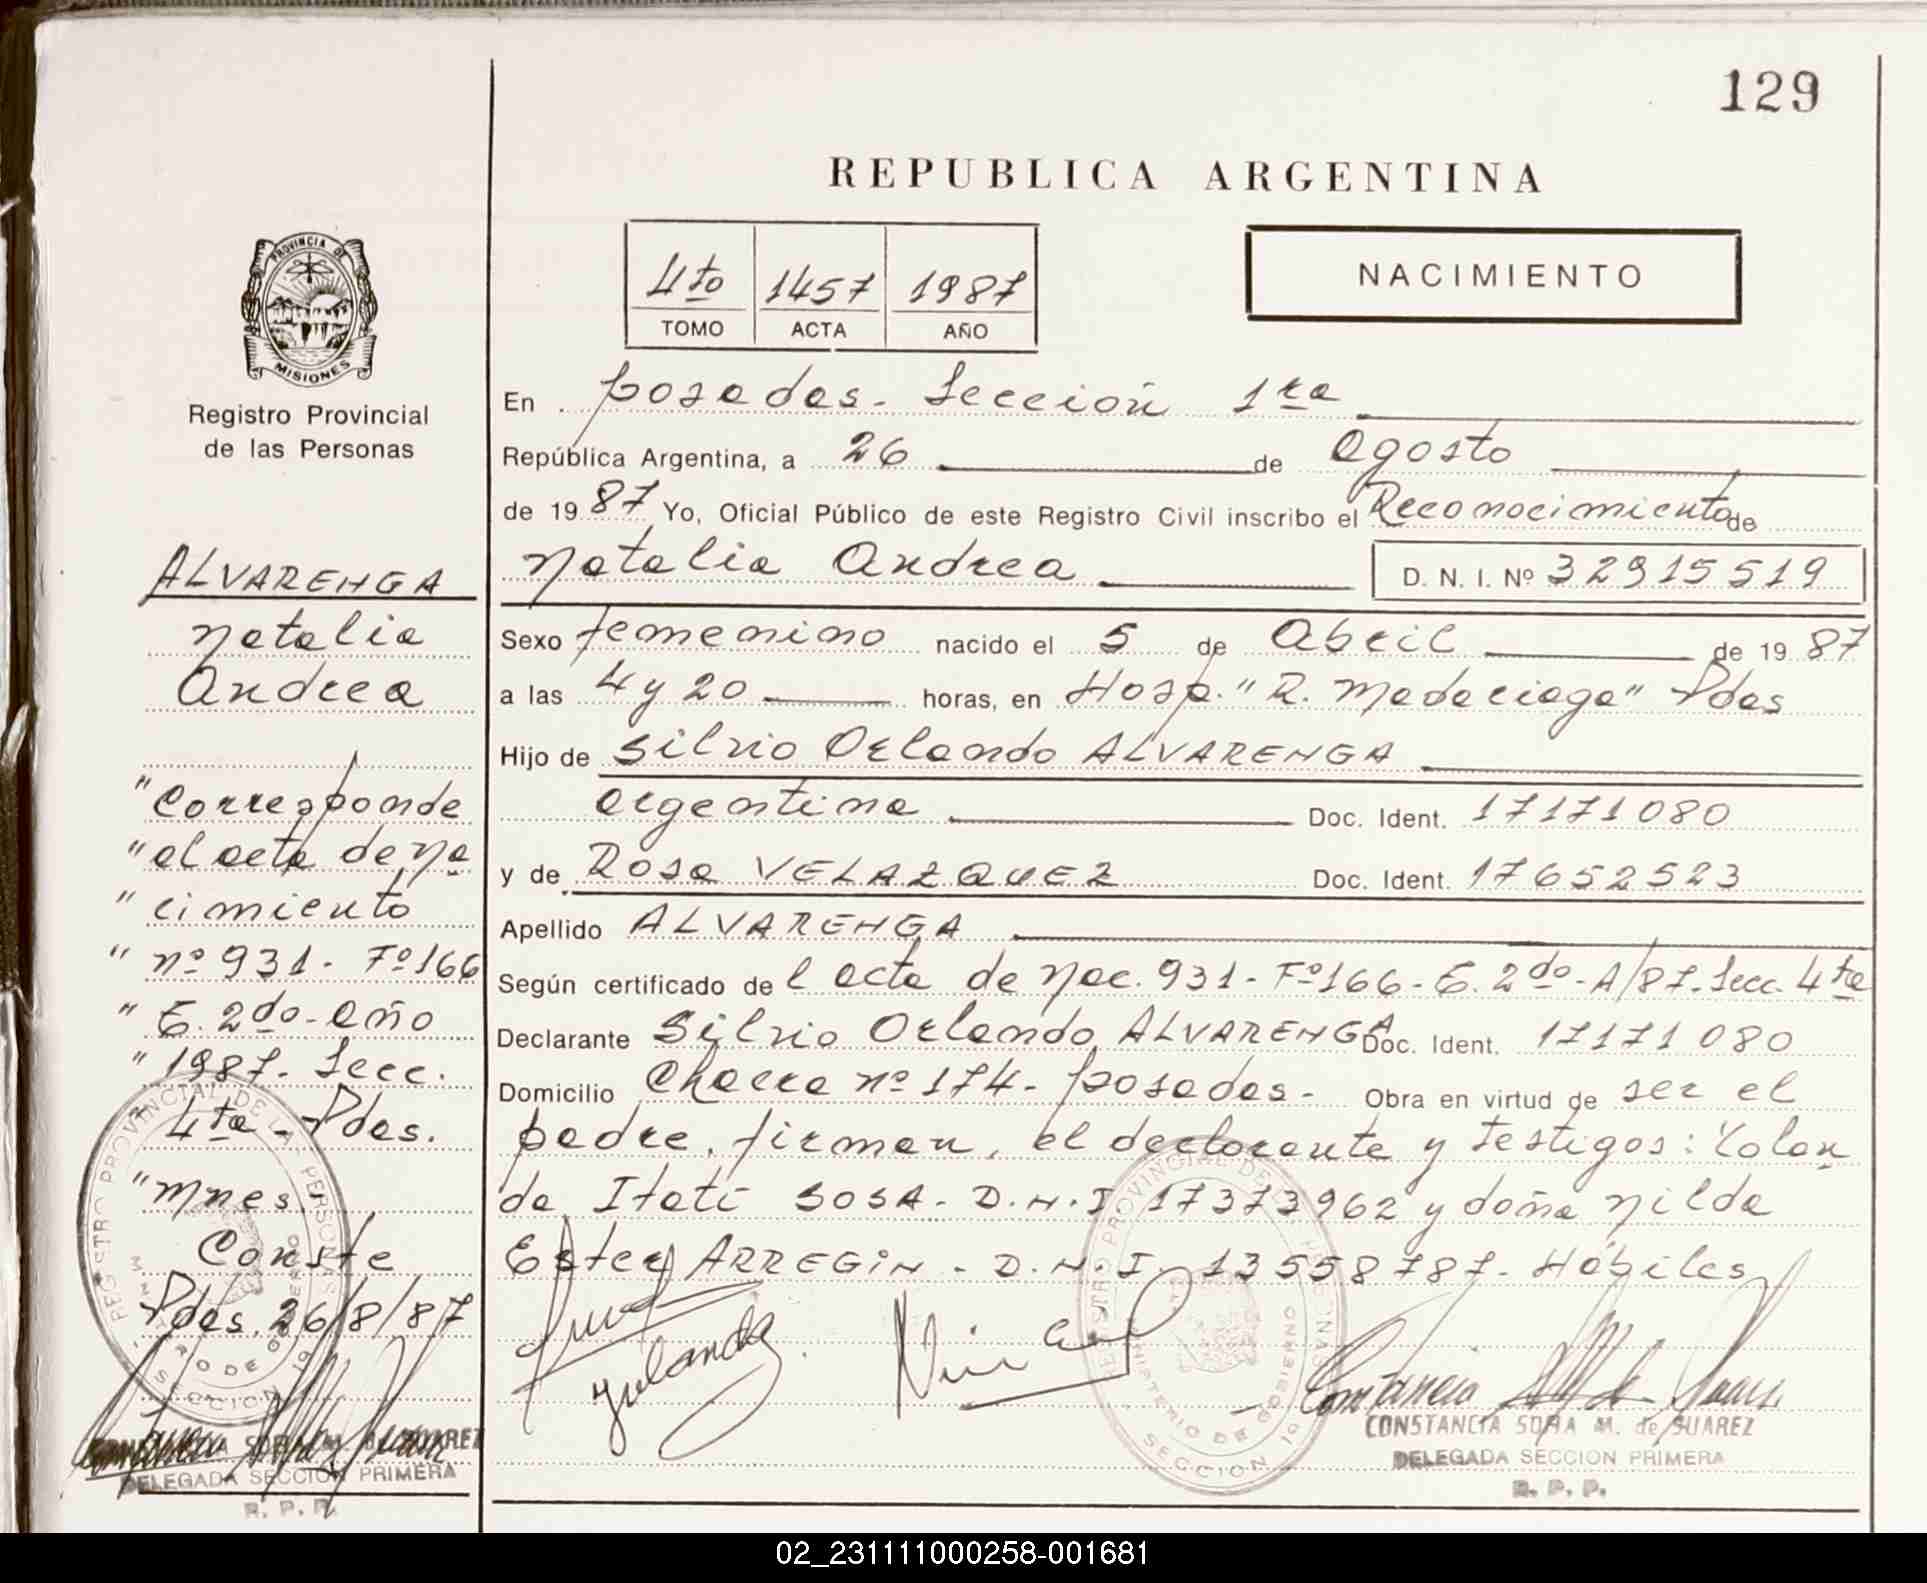 129
REPUBLICA ARGENTINA
4to 1457 1987
TOMO ACTA AÑO
NACIMIENTO
PROVINCIA DE
MISIONES
Registro Provincial
de las Personas
ALVARENGA
Natalia
Andrea
"Corresponde
"al acta de Na
"cimiento
" nº 931- Fº166
" T. 2do- año
" 1987- Secc.
4ta - Pdas.
"Mnes.
Conste
Pdas. 26/8/87
CONSTANCIA SOFIA M. de SUAREZ
DELEGADA SECCION PRIMERA
R. P. P.
En Posadas- Sección 1ra
República Argentina, a 26 de agosto
de 1987 Yo, Oficial Público de este Registro Civil inscribo el Reconocimiento de
Natalia Andrea D. N. I. Nº 32915519
Sexo femenino nacido el 5 de Abril de 1987
a las 4 y 20 horas, en Hosp. "R. Madariaga" Pdas
Hijo de Silvio Orlando ALVARENGA
argentina Doc. Ident. 17171080
y de Rosa VELAZQUEZ Doc. Ident. 17652523
Apellido ALVARENGA
Según certificado del acta de Nac. 931- Fº166- T. 2do- A/87- Secc. 4ta
Declarante Silvio Orlando ALVARENGA Doc. Ident. 17171080
Domicilio Chacra nº 174- Posadas- Obra en virtud de ser el
padre, firman, el declarante y testigos: Yolan
da Itatí SOSA- D.N.I 17373962 y doña Nilda
Ester ARREGIN - D.N.I. 13558787- Hábiles
Yolanda
CONSTANCIA SOFIA M. de SUAREZ
DELEGADA SECCION PRIMERA
R. P. P.
REGISTRO PROVINCIAL DE LAS PERSONAS
MINISTERIO DE GOBIERNO
SECCION 1º
02_231111000258-001681